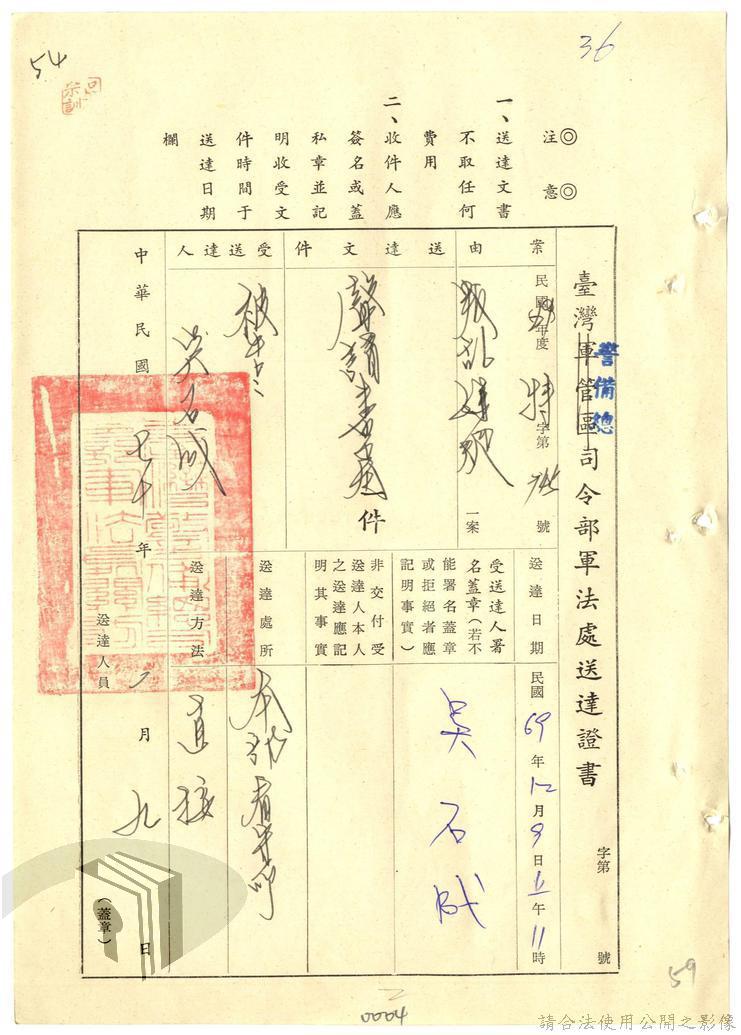 36
54
注意
一、送達文書
不取任何
費用
二、收件人應
簽名或蓋
私章並記
明收受文
件時間于
送達日期
欄
臺灣軍管區司令部軍法處送達證書
警備總
字第 號
案由
民國 年度 特 字第 號
叛亂
一案
送達文件
聲請書
件
受送達人
被告
吳石成
送達日期
民國69年12月9日上午11時
受送達人署
名蓋章(若不
能署名蓋章
或拒絕者應
記明事實)
吳石成
非交付受
送達人本人
之送達應記
明其事實
送達處所
本部看守所
送達方法
直接
中華民國 七十年 月 九 日
送達人員
(蓋章)
59
0004
請合法使用公開之影像